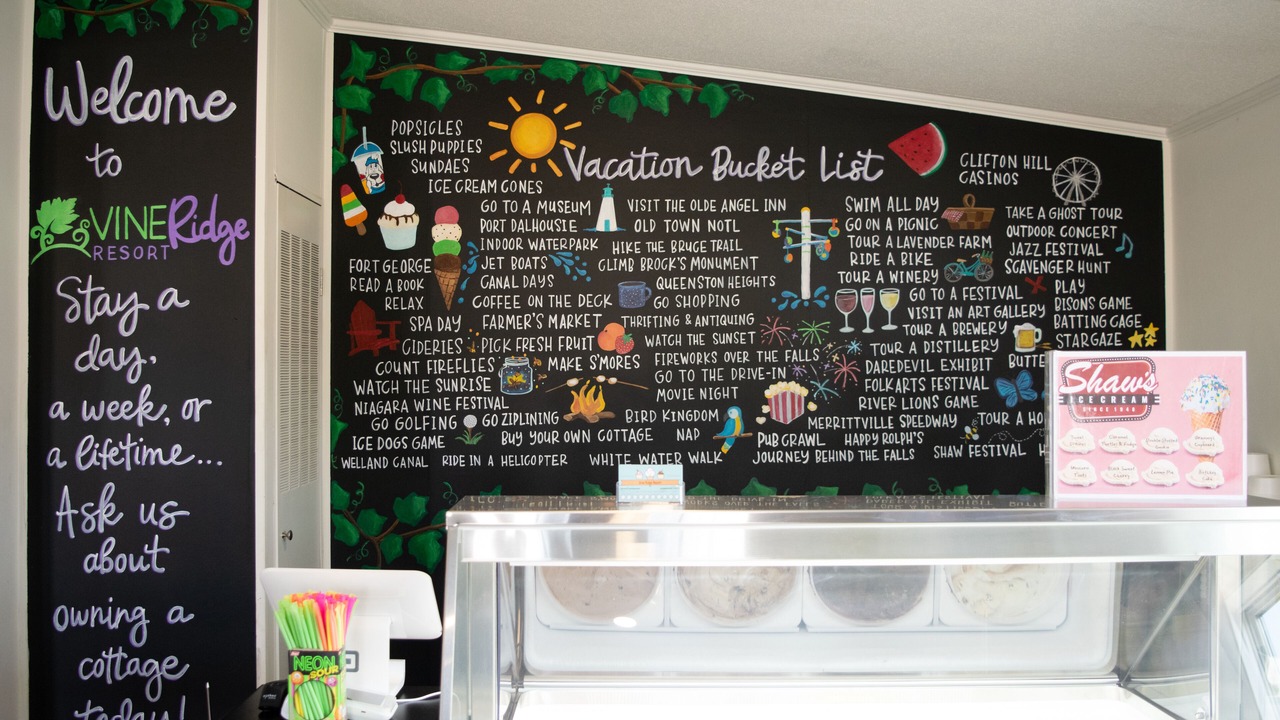 Welcome
to
VINERidge
RESORT
Stay a
day,
a week, or
a lifetime...
Ask us
about
owning a
cottage
today!
Vacation Bucket List
POPSICLES
SLUSH PUPPIES
SUNDAES
ICE CREAM CONES
GO TO A MUSEUM
PORT DALHOUSIE
INDOOR WATERPARK
JET BOATS
CANAL DAYS
COFFEE ON THE DECK
FORT GEORGE
READ A BOOK
RELAX
SPA DAY
FARMER'S MARKET
CIDERIES
PICK FRESH FRUIT
COUNT FIREFLIES
MAKE S'MORES
WATCH THE SUNRISE
NIAGARA WINE FESTIVAL
GO GOLFING
GO ZIPLINING
ICE DOGS GAME
BUY YOUR OWN COTTAGE
WELLAND CANAL
RIDE IN A HELICOPTER
WHITE WATER WALK
VISIT THE OLDE ANGEL INN
OLD TOWN NOTL
HIKE THE BRUCE TRAIL
CLIMB BROCK'S MONUMENT
QUEENSTON HEIGHTS
GO SHOPPING
THRIFTING & ANTIQUING
WATCH THE SUNSET
FIREWORKS OVER THE FALLS
GO TO THE DRIVE-IN
MOVIE NIGHT
BIRD KINGDOM
NAP
PUB CRAWL
HAPPY ROLPH'S
JOURNEY BEHIND THE FALLS
SHAW FESTIVAL
H
SWIM ALL DAY
GO ON A PICNIC
TOUR A LAVENDER FARM
RIDE A BIKE
TOUR A WINERY
GO TO A FESTIVAL
VISIT AN ART GALLERY
TOUR A BREWERY
TOUR A DISTILLERY
BUTTE
DAREDEVIL EXHIBIT
FOLKARTS FESTIVAL
RIVER LIONS GAME
MERRITTVILLE SPEEDWAY
TOUR A HO
CLIFTON HILL
CASINOS
TAKE A GHOST TOUR
OUTDOOR CONCERT
JAZZ FESTIVAL
SCAVENGER HUNT
PLAY
BISONS GAME
BATTING CAGE
STARGAZE
Shaw's
ICE CREAM
SINCE 1948
NEON
SOUR